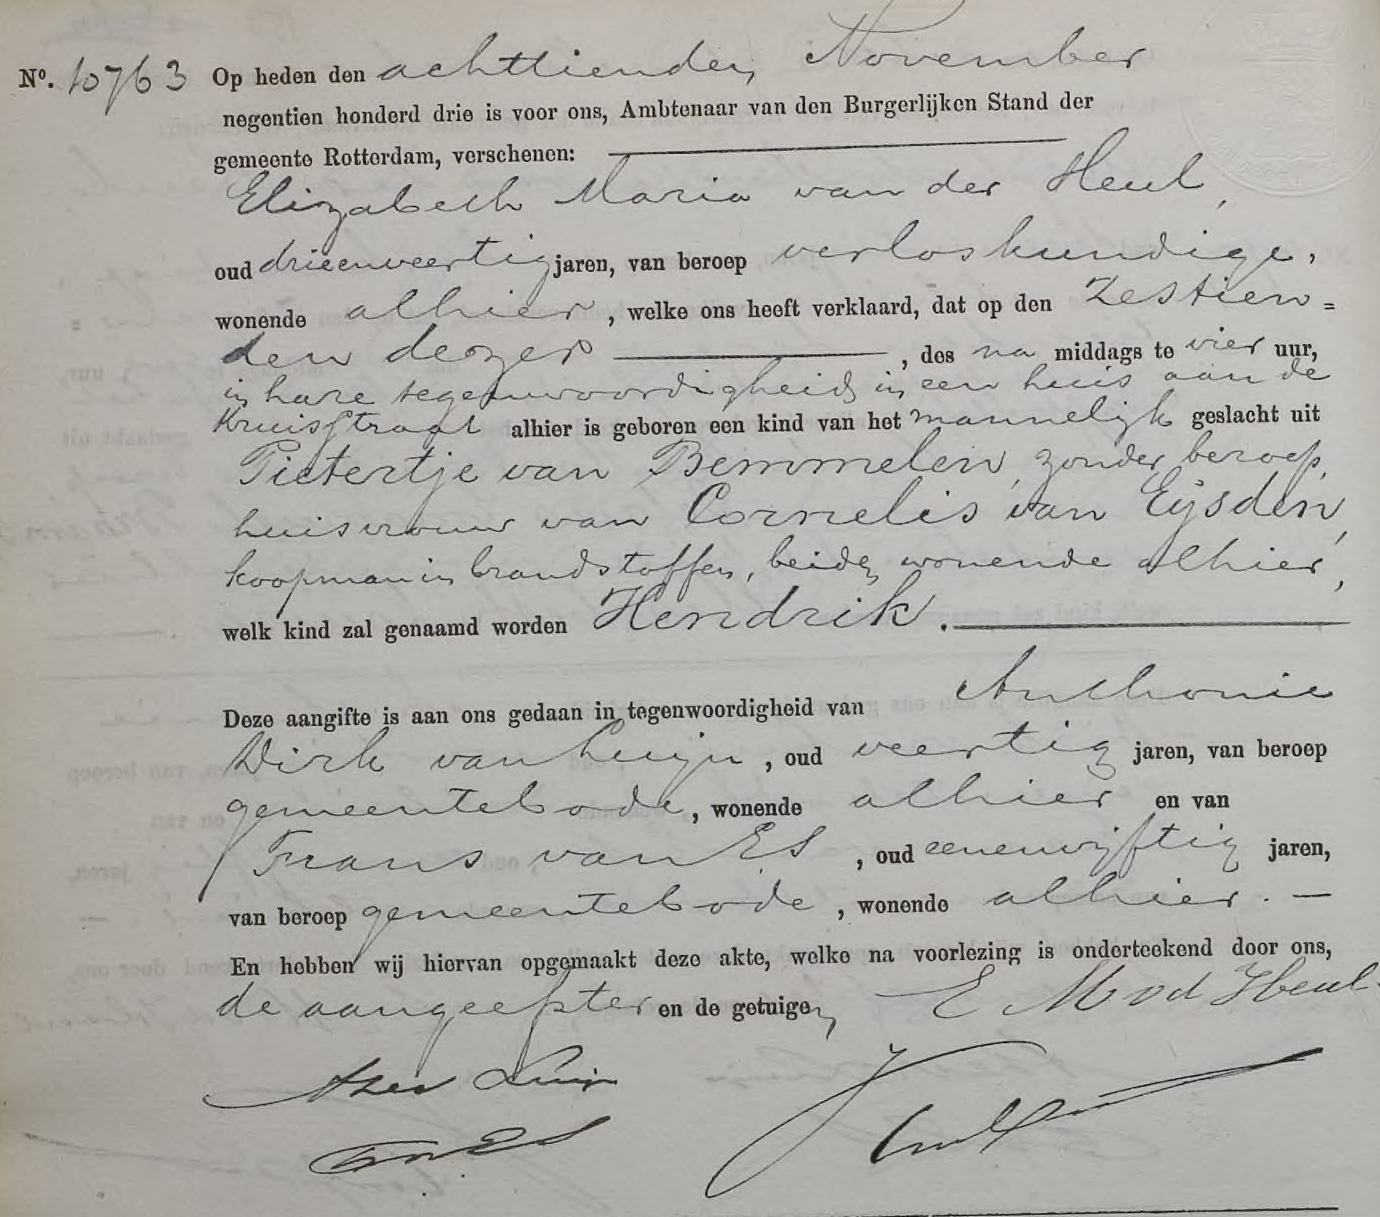 Nº. 10763 Op heden den achttienden November
negentien honderd drie is voor ons, Ambtenaar van den Burgerlijken Stand der
gemeente Rotterdam, verschenen:
Elizabeth Maria van der Heul,
oud drieenveertig jaren, van beroep verloskundige,
wonende alhier, welke ons heeft verklaard, dat op den zestien=
den dezer, des na middags te vier uur,
in hare tegenwoordigheid in een huis aan de
Kruisstraat alhier is geboren een kind van het mannelijk geslacht uit
Pietertje van Bemmelen, zonder beroep,
huisvrouw van Cornelis van Eijsden,
koopman in brandstoffen, beiden wonende alhier,
welk kind zal genaamd worden Hendrik.
Deze aangifte is aan ons gedaan in tegenwoordigheid van Anthonie
Dirk van Luijn, oud veertig jaren, van beroep
gemeentebode, wonende alhier en van
Frans van Es, oud eenenvijftig jaren,
van beroep gemeentebode, wonende alhier. —
En hebben wij hiervan opgemaakt deze akte, welke na voorlezing is onderteekend door ons,
de aangeefster en de getuigen, E M v d Heul.
ADvan Luijn
FvanEs